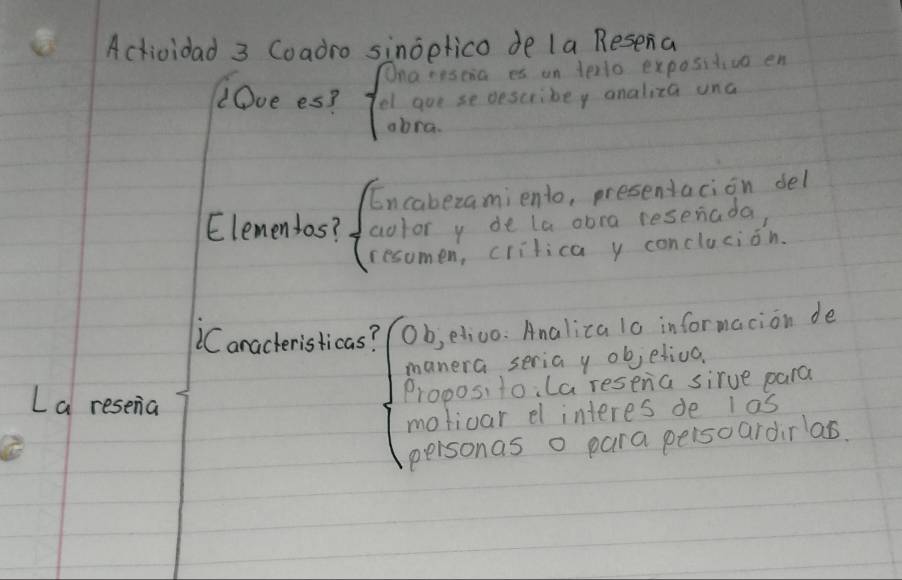 Actividad 3 Cuadro sinóptico de la Reseña
Una reseña es un texto expositivo en
¿Que es? el que se describe y analiza una
obra.
Encabezamiento, presentación del
Elementos? autor y de la obra reseñada,
resumen, crítica y conclusión.
¿Caracteristicas? Objetivo: Analiza la información de
manera seria y objetiva.
Proposito. La reseña sirve para
La reseña
motivar el interes de las
personas o para persuardirlas.